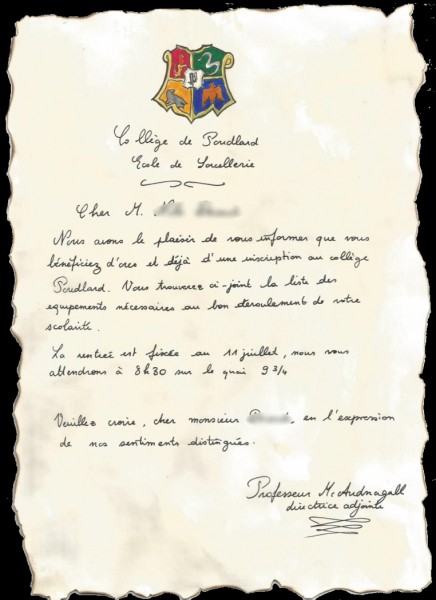 Collège de Poudlard
Ecole de Sorcellerie
Cher M.
Nous avons le plaisir de vous informer que vous
bénéficiez d'ores et déjà d'une inscription au collège
Poudlard. Vous trouverez ci-joint la liste des
equipements nécessaires au bon déroulement de votre
scolarité.
La rentrée est fixée au 11 juillet, nous vous
attendrons à 8h30 sur le quai 9 3/4
Veuillez croire, cher monsieur, en l'expression
de nos sentiments distingués.
Professeur McAudnagall
directrice adjointe